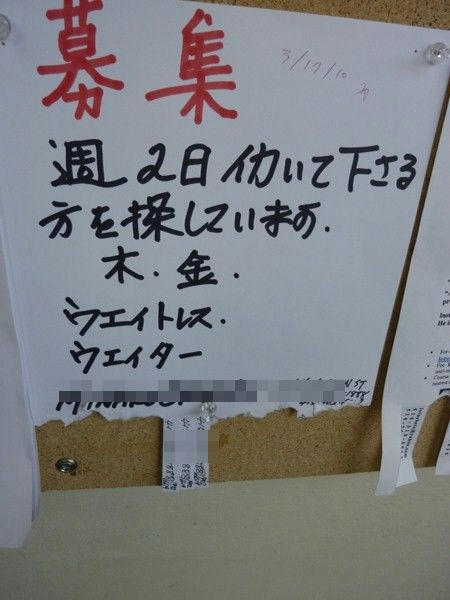 募集
3/17/10
週2日仂いて下さる
方を探しています.
木.金.
ウエイトレス.
ウエイター